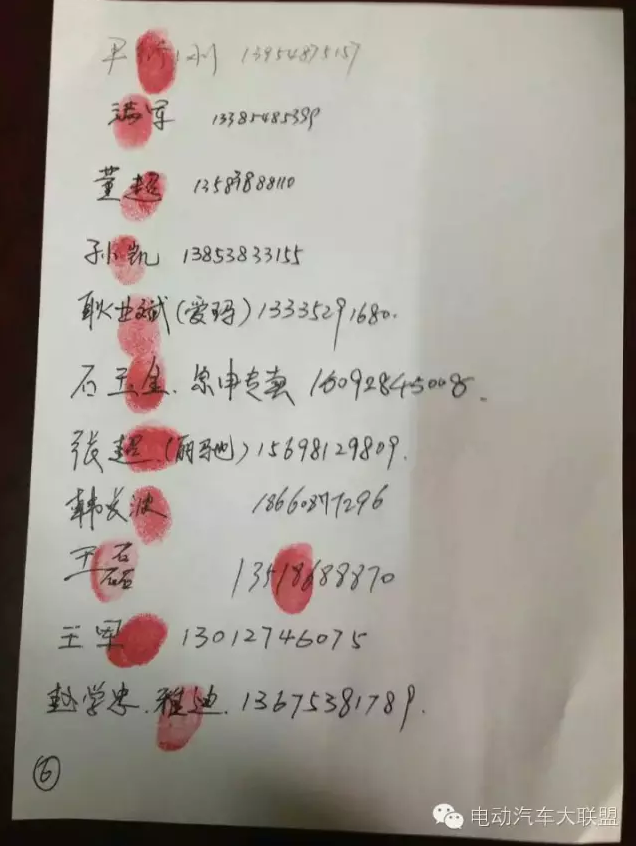 13954875157
洪军 13385485399
董超 13589788110
孙凯 13853833155
职业斌(爱玛)13335291680.
石玉金.宗申专卖 16092845008.
张超(丽驰)15698129809.
韩发波 18660877296
王磊 13518688870
王军 13012746075
赵学忠.雅迪.13675381789.
6
电动汽车大联盟